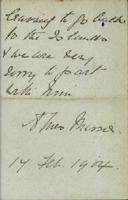 leaving to go back
to the Islands
& we are very
sorry to part
with him
Agnes
17 Feb. 1904.